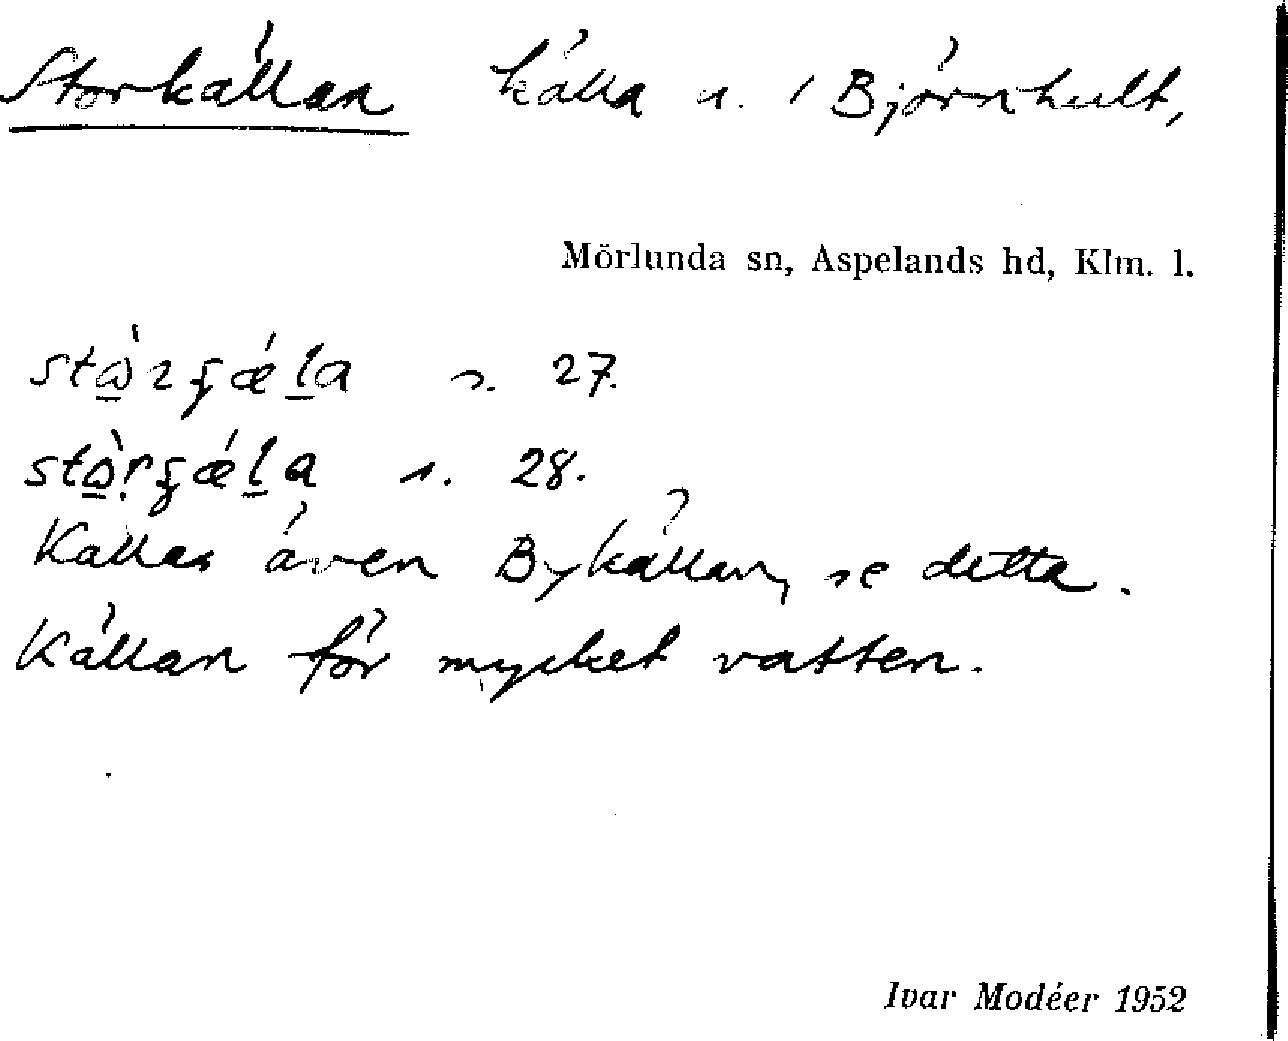 Storkällan källa n. / Björnhult,
Mörlunda sn, Aspelands hd, Klm. l.
s. 27.
s. 28.
Kallas även Bykällan, se detta.
Källan för mycket vatten.
Ivar Modéer 1952